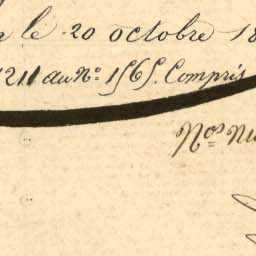 le 20 octobre 18
1211 au Nº 1565. Compris
Nos Nu